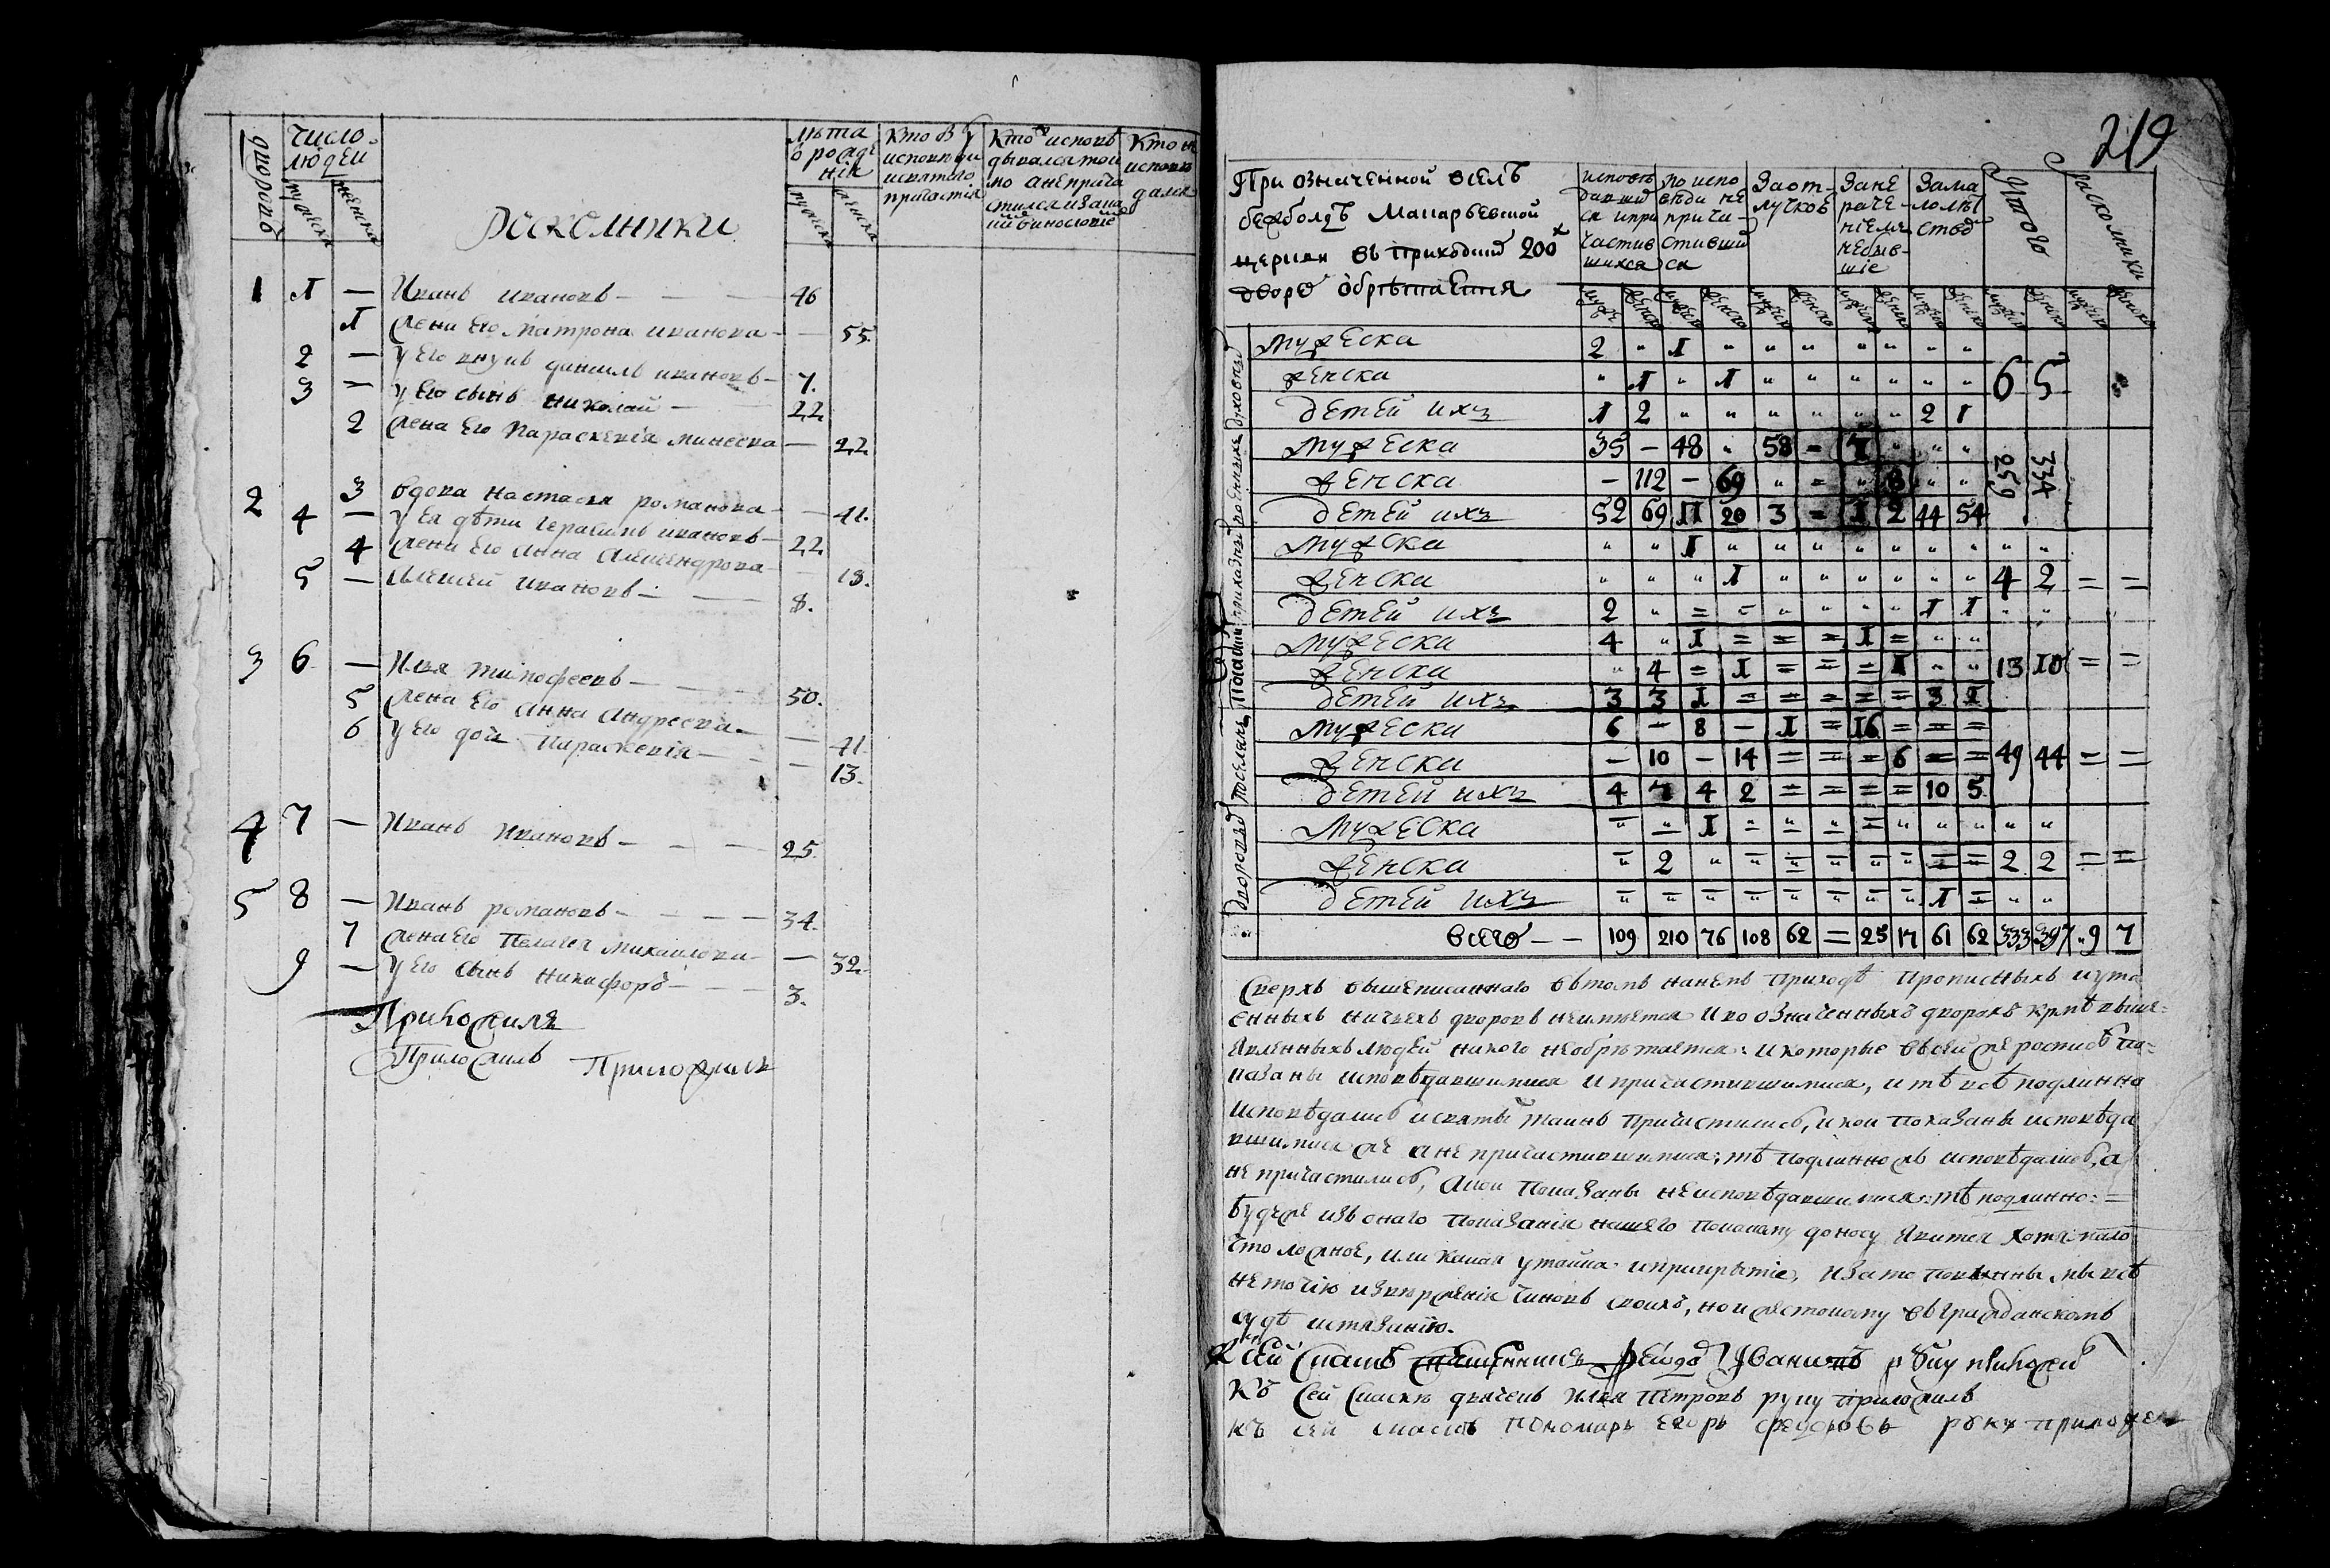 число людей
дворовъ
мужеска
женска
лѣта
о рожде
нія
мужеска
женска
Кто въ у
исповѣди
исвятаго
причастія
Кто исповѣ
дывался токи
мо анеприча
стился изака
Кто не
исповѣ
дался
РОСКОЛНИКИ
1 1 — Иванъ Ивановъ — 46
1 жена Его Матрона иванова — 55
2 — у Его внукъ даниилъ ивановъ — 7.
3 — у Его сынъ николай — 22
2 жена Его Параскевія минеева — 22
2 3 вдова настасья романова — 41.
4 — у Ея дѣти герасимъ ивановъ — 22
4 жена Его Анна Алеѯандрова — 19.
5 — алеѯей ивановъ — 8.
3 6 — Илья тимофеевъ — 50.
5 жена Его Анна Андреева — 41
6 у Его дочь Параскевія — 13.
4 7 — Иванъ Ивановъ — 25.
5 8 — Иванъ романовъ — 34.
7 жена Его Пелагея Михаилова — 32
9 — у Его сынъ никифоръ — 3.
Приложилъ
Приложилъ Приложилъ
219
При означенной вселѣ
Макарьевской
церкви въ приходѣ 200
дворѡ обрѣтается
исповѣ
давши
ся ипри
частив
шихся
по испо
вѣди не
причи-
стивши
ся
За от-
лучкою
Зане
раче-
ніемъ
небыв-
шіе
Зама
лолѣт
ство
Итого
расколники
духовныхъ
мужеска 2 " 1 " " " " " " "
женска " 1 " 1 " " " " " " 6 5
детей ихъ 1 2 " " " " " " 2 1
военныхъ
мужеска 35 — 48 " 58 = 7 " " "
женска — 112 — 69 " = " 8 " " 259 334
детей ихъ 52 69 11 20 3 = 1 2 44 54
приказныхъ
мужска " " 1 " " " " " " " " "
женска " " " 1 " " " " " " 4 2 = =
детей ихъ 2 " = = " " " " 1 1 " "
мужеска 4 " 1 = = = 1 = " "
женска " 4 = 1 = = = 1 " " 13 10 = =
детей ихъ 3 3 1 = = = = = 3 1
поселянъ
мужески 6 — 8 — 1 = 16 = = =
женска — 10 — 14 = = = 6 = = 49 44 = =
детей ихъ 4 7 4 2 = = = = 10 5
дворовыхъ
мужеска = = 1 = = = = " " " " "
женска = 2 " = = = = " = = 2 2 = =
детей ихъ = = = = = = = = 1 = " "
всего — — 109 210 76 108 62 = 25 17 61 62 333 397 9 7
Сверхъ вышеписаннаго втомъ нашемъ приходѣ прописныхъ иута
енныхъ ничьехъ дворовъ неимѣется иво означенныхъ дворахъ кромѣ выше=
явленныхъ людей никого необрѣтается: икоторые всей же росписѣ по=
казаны исповѣдавшимися и причастившимися, и тѣ всѣ подлинно
исповѣдались исвятыхъ таинъ причастились, икои показаны исповѣда
вшимися же анепричастившимися: тѣ подлинножъ исповѣдались, а
не причастились, Акои показаны неисповѣдавшимися: тѣ подлинно: =
будеже изъ онаго показанія нашего покакому доносу явится хотя мало
что ложное, или какая утайка иприкрытіе, изато повинны мы всѣ
неточію изверженія чиновъ своихъ, но и жестокому въ гражданскомъ
судѣ истязанію.
К сей Сказкѣ священникъ Ѳеѡдоръ Ивановъ руку приложилъ
Къ сей Сказкѣ дьячекъ Илья Петровъ руку приложилъ
Къ сей сказкѣ пономарь егоръ федоровъ руку приложилъ